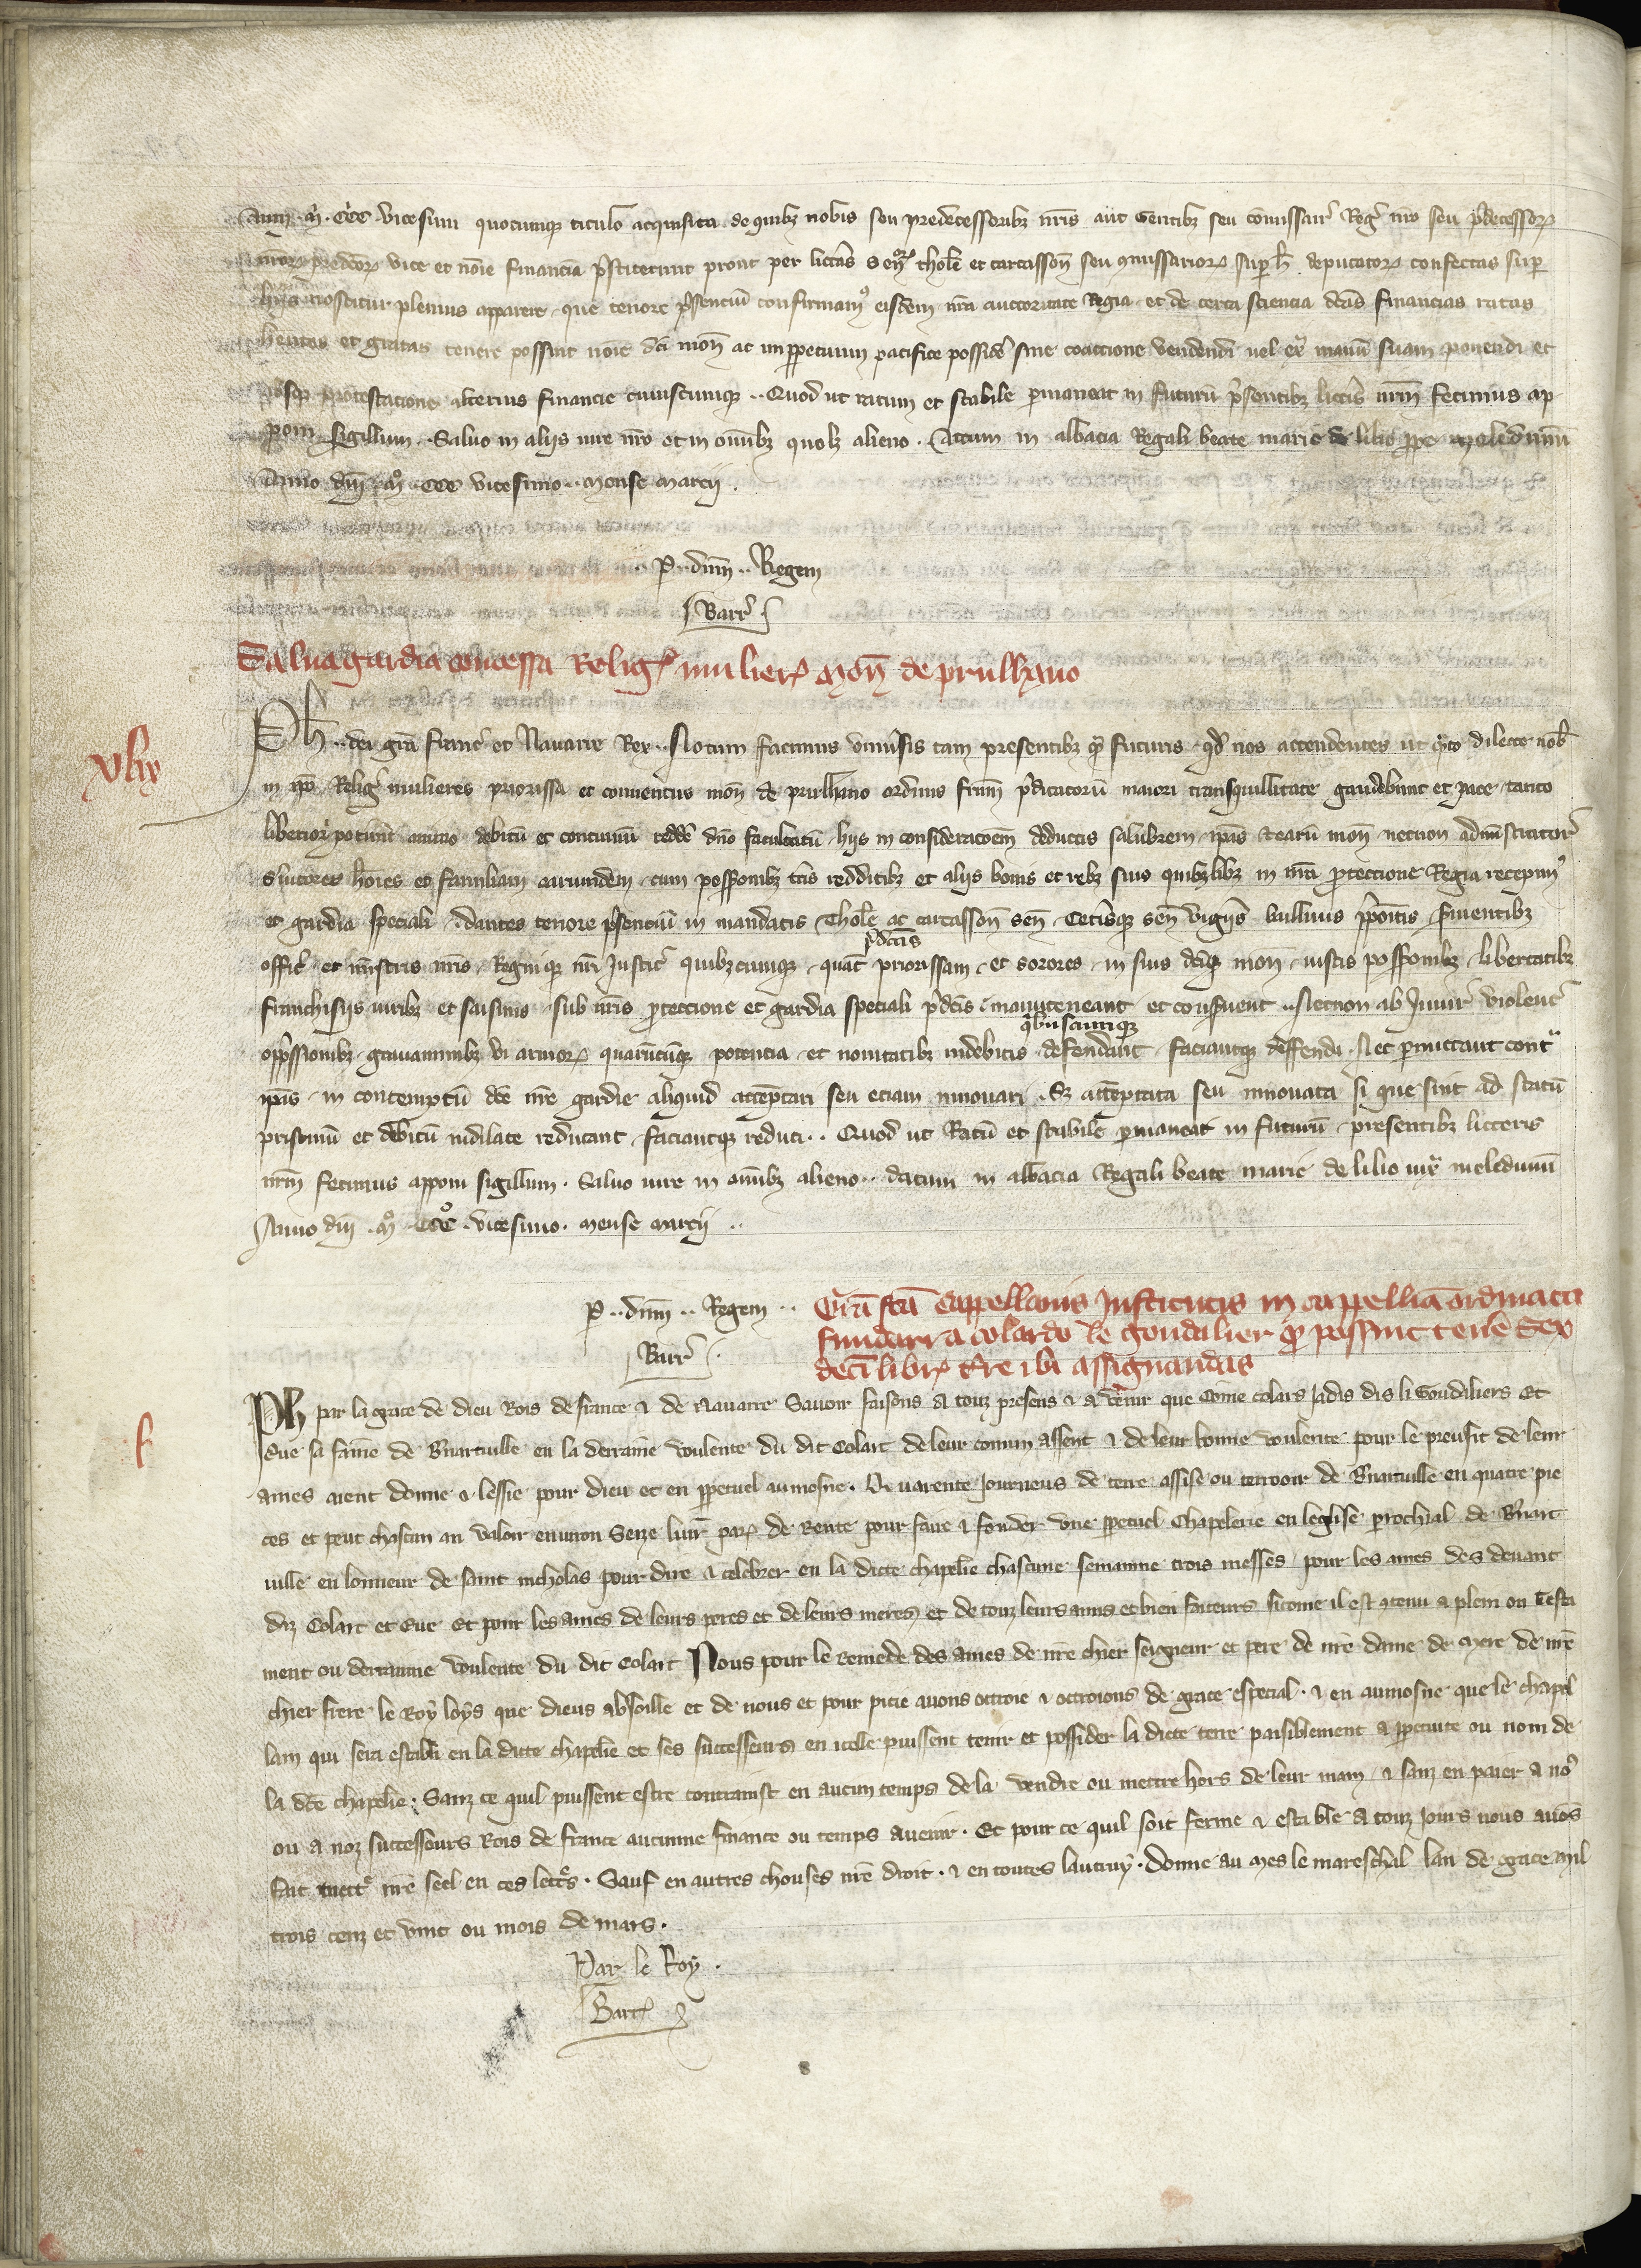 Anni . mi . CCC vicesimi quocumque titulo acquisita de quibz nobis seu predecessoribz nris aut Gentibz seu comissar Reg nro seu pdecessorz
nrorz predcorz vice et noie financia pstiterunt prout per litteras Senz thole et carcasson seu comissariorz sup h deputatorz confectas sup
hys noscitur plenius apparere que tenore psentiu confirmam eisdem nra auctoritate Regia et de certa sciencia dcas financias ratas
hentes et gratas tenere possint noie dci mon ac imperpetuum pacifice possidere sine coaccione vendendi uel ext manu suam ponendi et
absqz prestacione alterius financie cuiuscumqz .. Quod ut ratum et stabile pmaneat in futuru psentibz litteris nrm fecimus ap
poni sigillum . Saluo in alijs iure nro et in omibz quolz alieno . Actum in abbacia Regali beate marie de lilio ppe meledunu
Anno dni m CCC vicesimo .. mense marcij .
P .. dnm .. Regem
Barr
Salua gardia concessa Relig mulierz mon de prulhano
Ph .. dei gra Franc et Nauarre Rex .. Notum facimus uniuersis tam presentibz qm futuris qd nos attendentes ut qto dilecte nob
in xpo Relig mulieres priorissa et conuentus mon de prulhano ordinis frum pdicatoru maiori tranquillitate gaudebunt et pace tanto
liberiori poterunt animo debitu et continuu reddere dno famulatu hijs in consideracoem deductis salubrem ipas earu mon necnon administrator
suitores hoies et familiam earumdem cum possonibz tris redditibz et alijs bonis et rebz suis quibzlibz in nra proteccione Regia recepim
et gardia speciali . dantes tenore psentiu in mandatis Thole ac carcasson sen Ceterisqz sen vigijs bailliuis ppositis seruientibz
offic et ministris nris Regniqz nri Justic quibzcumqz quat pdcas priorissam et sorores in suis dciqz mon iustis possonibz libertatibz
franchisijs iuribz et saisinis sub nris proteccione et gardia speciali pdcis manuteneant et conseruent necnon ab Iniur violenc
oppssionibz grauaminibz vi armorz quarucumqz potencia et nouitatibz indebitis qbuscumqz defendant faciantqz deffendi . Nec pmittant cont
ipas in contemptu dce nre gardie aliquid attemptari seu etiam innouari . Sz attemptata seu innouata si que sint ad statu
pristinu et debitu indilate reducant faciantqz reduci .. Quod ut Ratu et stabile pmaneat in futuru presentibz litteris
nrm fecimus apponi sigillum . Saluo iure in omibz alieno . datum in abbacia Regali beate marie de lilio iux meledunu
Anno dni . m . CCC . vicesimo . mense marcij ..
vlix
P .. dnm .. Regem ..
Barr
Gra fca Cappellanis Institutis in cappellia ordinata
fundari a colardo le goudalier qd possint tenere sex
deci librz tre ibi assignandas
f
Ph par la grace de dieu Rois de france & de Nauarre Sauoir faisons a touz presens & a venir que Come colars Jadis dis li Goudiliers Et
Eue sa fame de Buatuille en la derraine voulente du dit Colart de leur comun assent & de leur bonne voulente pour le preufit de leur
ames aient donne & lessie pour dieu et en ppetuel aumosne . Quarente Journeus de terre assise ou terroir de Buatuille en quatre pie
ces et peut chascun an valoir enuiron Seze liur parz de Rente pour faire & fonder vne ppetuel Chapelerie en leglise perochial de Buat
uille en lonneur de saint nicholas pour dire & celebrer en la dicte chapelie chascune semainne trois messes pour les ames des deuant
diz Colart et Eue Et pour les ames de leurs peres et de leurs meres et de touz leurs amis et bien faiteurs sicome il est contenu a plein ou testa
ment ou derrainne voulente du dit Colart Nous pour le Remede des ames de nre chier seigneur et pere de nre dame de mere de nre
chier frere le Roy loys que dieus absoille et de nous et pour pitie auons ottroie & ottroions de grace especial . & en aumosne que le chapel
lain qui sera establi en la dicte chapelie et ses successeurs en icelle puissent tenir et possider la dicte terre paisiblement a ppetuite ou nom de
la dce chapelie . Sanz ce quil puissent estre contrainst en aucun temps de la vendre ou mettre hors de leur main & sanz en paier a no
ou a noz successours Rois de france aucunne finance ou temps auenir . Et pour ce quil soit ferme & estable a touz Jours nous auos
fait mettr nre seel en ces lettrs . Sauf en autres chouses nre droit . & en toutes lautruy . donne au mes le mareschal lan de grace mil
trois cenz et vint ou mois de mars .
Par le Roy .
Barr